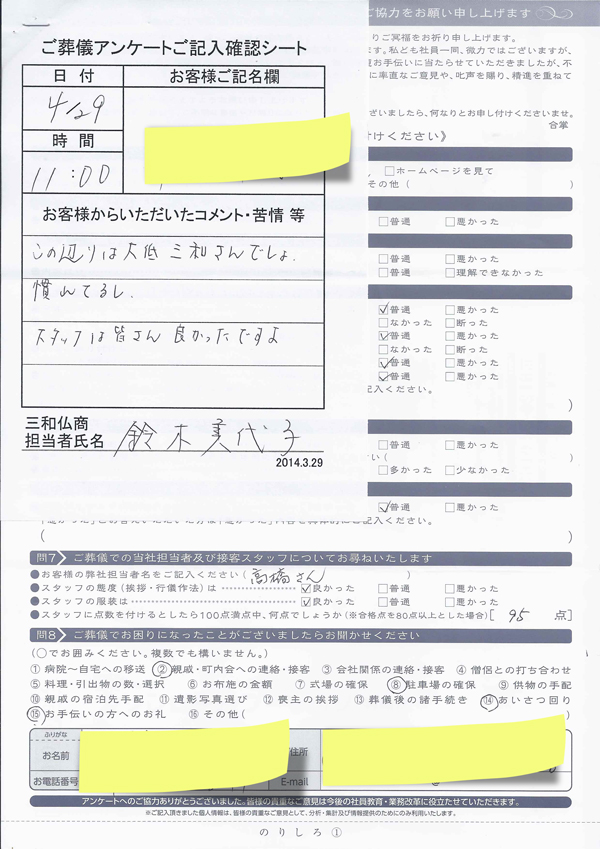 ご葬儀アンケートご記入確認シート
日付
お客様ご記名欄
4/29
時間
11:00
お客様からいただいたコメント・苦情 等
この辺りは大低 三和さんでしょ.
慣れてるし.
スタッフは皆さん 良かったですよ
三和仏商
担当者氏名 鈴木美代子
2014.3.29
ご協力をお願い申し上げます
りご冥福をお祈り申し上げます。
ます。私ども社員一同、微力ではございますが、
お手伝いに当たらせていただきましたが、不
に率直なご意見や、叱声を賜り、精進を重ねて
ざいましたら、何なりとお申し付けくださいませ。
合掌
付けください》
□ホームページを見て
その他（ ）
□普通 □悪かった
□普通 □悪かった
□普通 □理解できなかった
☑普通 □悪かった
□なかった □断った
☑普通 □悪かった
□なかった □断った
☑普通 □悪かった
☑普通 □悪かった
記入ください。
）
□普通 □悪かった
い（ ）
□多かった □少なかった
☑普通 □悪かった
（ ）
問7 ご葬儀での当社担当者及び接客スタッフについてお尋ねいたします
●お客様の弊社担当者名をご記入ください（ 高橋さん ）
●スタッフの態度（挨拶・行儀作法）は ☑良かった □普通 □悪かった
●スタッフの服装は ☑良かった □普通 □悪かった
●スタッフに点数を付けるとしたら100点満点中、何点でしょうか（※合格点を80点以上とした場合）［ 95 点］
問8 ご葬儀でお困りになったことがございましたらお聞かせください
（○でお囲みください。複数でも構いません。）
①病院〜自宅への移送 ②親戚・町内会への連絡・接客 ③会社関係の連絡・接客 ④僧侶との打ち合わせ
⑤料理・引出物の数・選択 ⑥お布施の金額 ⑦式場の確保 ⑧駐車場の確保 ⑨供物の手配
⑩親戚の宿泊先手配 ⑪遺影写真選び ⑫喪主の挨拶 ⑬葬儀後の諸手続き ⑭あいさつ回り
⑮お手伝いの方へのお礼 ⑯その他（ ）
ふりがな
お名前
住所
お電話番号
E-mail
アンケートへのご協力ありがとうございました。皆様の貴重なご意見は今後の社員教育・業務改革に役立たせていただきます。
※ご記入頂きました個人情報は、皆様の貴重なご意見として、分析・集計及び情報提供のためにのみ利用いたします。
のりしろ①